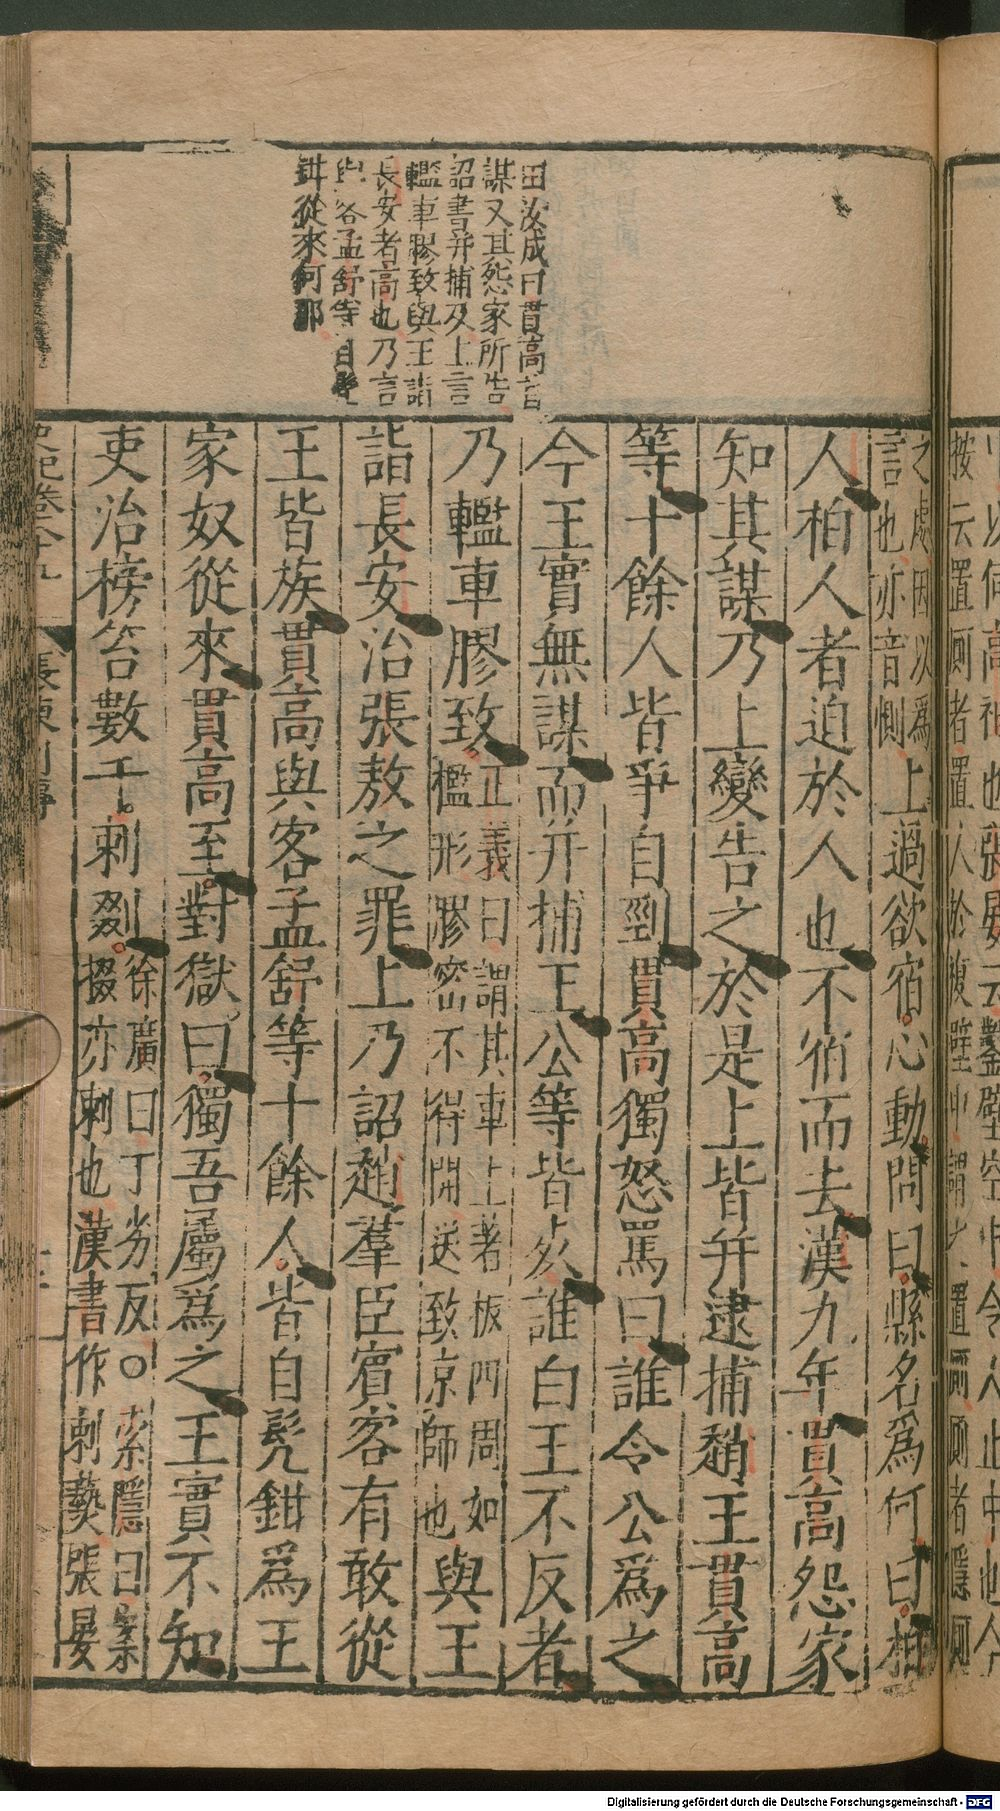 田汝成曰貫高皆
謀又其怨家所告
詔書并捕及上言
轞車膠致與王詣
長安者高也乃言
與客孟舒等自髡
鉗從來何耶
之處因以爲
言也亦音惻
上過欲宿心動問曰縣名爲何曰柏
人柏人者迫於人也不宿而去漢九年貫高怨家
知其謀乃上變告之於是上皆并逮捕趙王貫高
等十餘人皆爭自剄貫高獨怒罵曰誰令公爲之
今王實無謀而并捕王公等皆死誰白王不反者
乃轞車膠致
正義曰謂其車上著板四周如
檻形膠密不得開送致京師也
與王
詣長安治張敖之罪上乃詔趙羣臣賓客有敢從
王皆族貫高與客孟舒等十餘人皆自髡鉗爲王
家奴從來貫高至對獄曰獨吾屬爲之王實不知
吏治榜笞數千刺剟
徐廣曰丁劣反〇索隱曰案
掇亦刺也漢書作刺爇張晏
史記卷八十九
張陳列傳
按云置厠者置人於複壁中謂之置厠厠者隱側
Digitalisierung gefördert durch die Deutsche Forschungsgemeinschaft - DFG